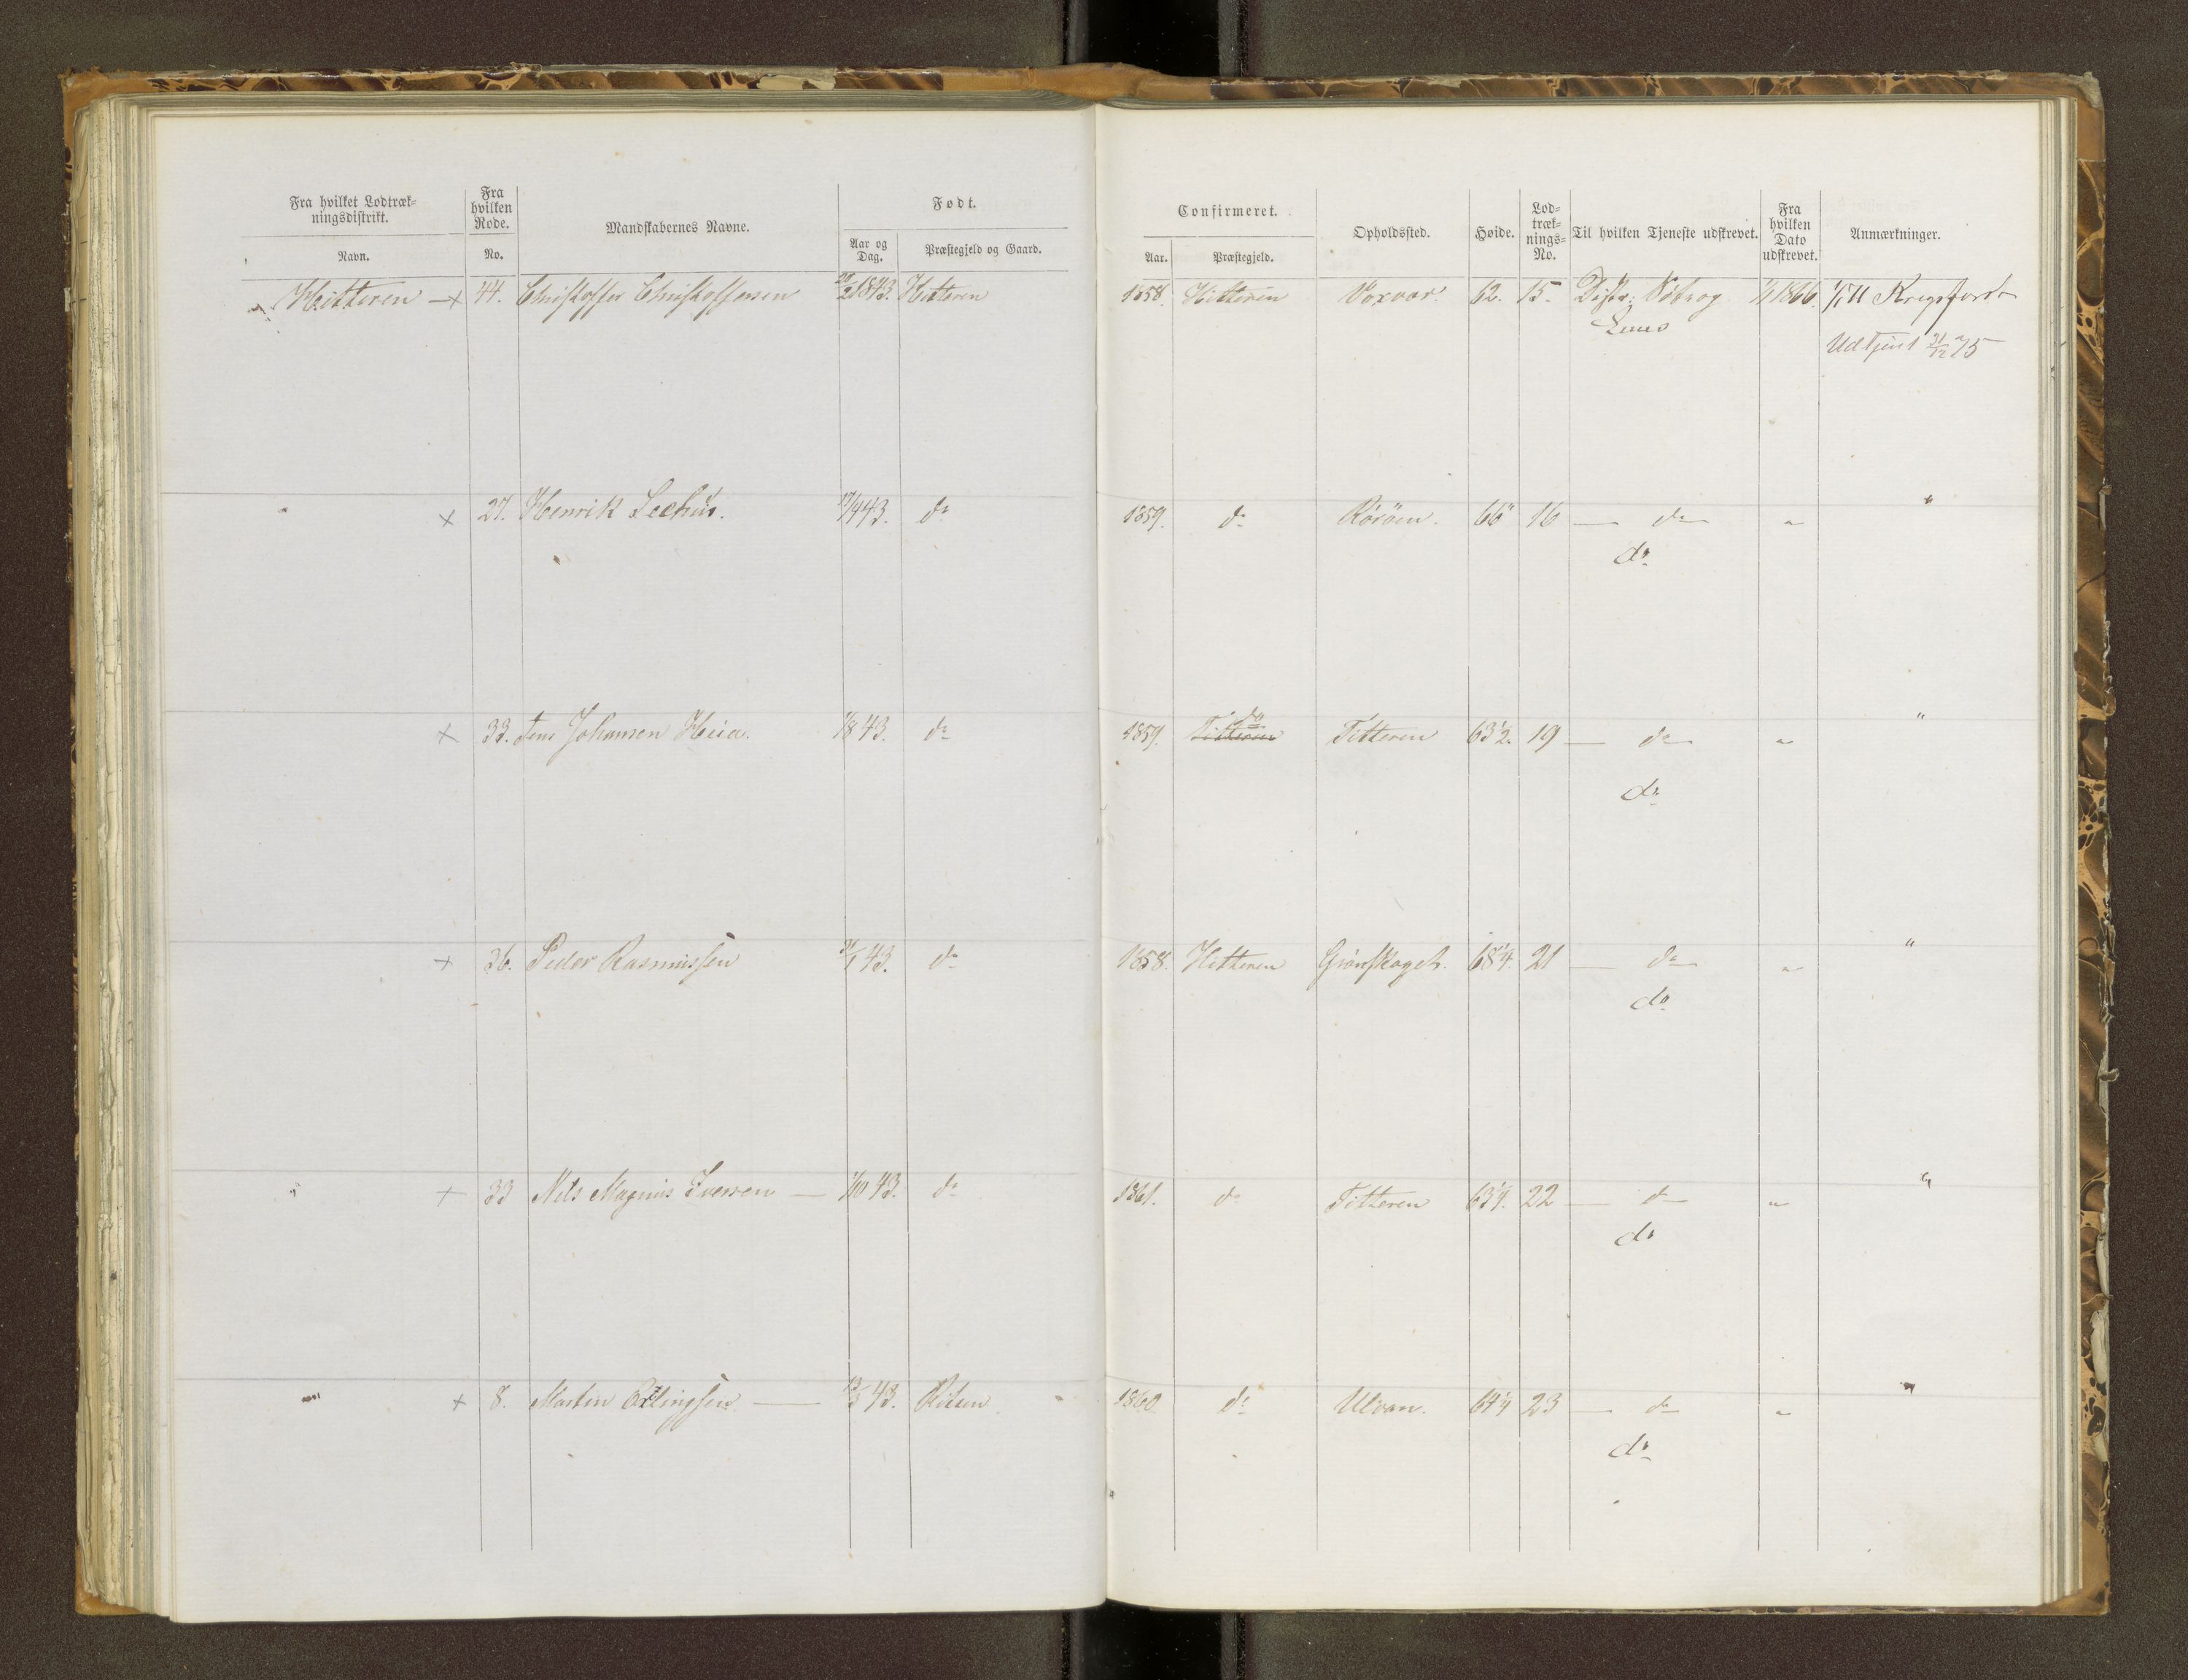 Fra hvilket Lodtræk-
ningsdistrikt.
Navn.
Fra
hvilken
Rode.
No.
Mandskabernes Navne.
Født.
Aar og
Dag.
Præstegjeld og Gaard.
Confirmeret.
Aar.
Præstegjeld.
Opholdssted.
Høide.
Lod-
træk-
nings-
No.
Til hvilken Tjeneste udskrevet.
Fra
hvilken
Dato
udskrevet.
Anmærkninger.
Hitteren + 44. Christoffer Christoffersen 1843. Hitteren 1858. Hitteren Vaxvar. 62. 15. 1/1 1866. Krigsforst
Udtjent 31/12 75
" + 27. Henrik Seehus. 17/9 43. do 1859. do Röröen. 66" 16 — do — "  "
do
+ 33. Jens Johansen Heia. 1/8 43. do 1859. do Titteren 63 1/2. 19 — do — " "
do
+ 36. Peder Rasmussen 43. do 1858. Hitteren Grönskaget. 68 1/4. 21 — do — " "
do
" + 33 Nils Magnus Iversen — 1/10 43. do 1861. do Titteren 63 1/4. 22 — do — " "
do
" + 8. Martin Erlingsen — 13/3 43. 1860 do Ulvan. 64 1/4 23 — do — " "
do